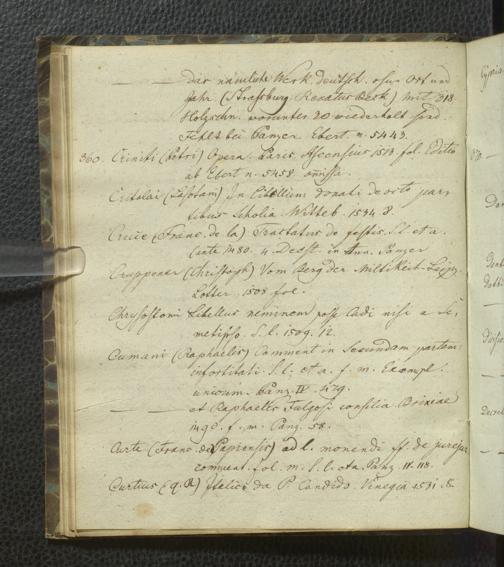 Das nämliche Werk deutsch. ohne Ort und
Jahr. (Strassburg Renatus Beck) mit 218
Holzschn. worunter 20 wiederholt sind.
Fehlt bei Panzer Ebert n. 5443.
360. Criniti (Petri) Opera. Paris. Ascensius 1513. fol. Editio
ab Ebert n. 5458 omissa.
Critolai In Libellum Donati de octo par-
tibus Scholia Witteb. 1534. 8.
Cruce (Franc. de la) Tractatus de festis. S. l. et a.
4. Deest. in Ann. Panzer
(Christoph) Vom Berg der Leipz.
Lotter. 1508 fol.
Chrysostomi Libellus neminem posse laedi nisi a se-
metipso. S. l. 1509. 12.
Cumani (Raphaelis) Comment in Secundam partem
infortiati. S. l. et a. f. m. Exempl.
unicum. Panz. IV. 479.
et Raphaelis Fulgosi consilia. Brixiae
f. m. Panz. 58.
Curte (Franc. de Papiensis) ad l. monendi ff. de jurejur.
comment. fol. m. S. l. et a. Panz. 118.
Curtius (Q. R.) Italice da P. Candido. Venegia 1531. 8.